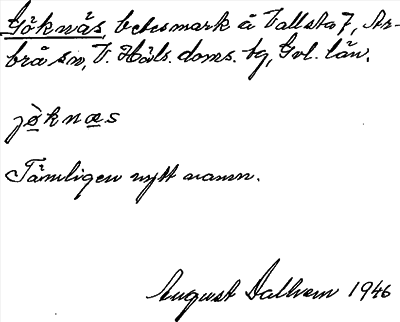 Göknäs, betesmark å Vallsta 7, Ar-
brå sn, V. Häls. doms. bg, Gvl. län.
jøknæs
Tämligen nytt namn.
August Dalhem 1946